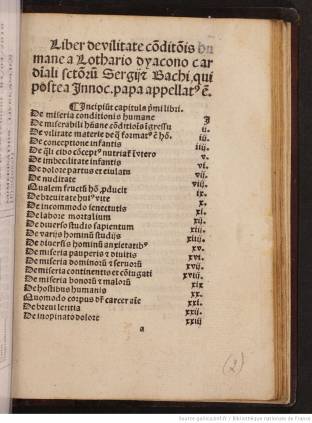 Liber de vilitate cōditōis hu
mane a Lothario dyacono car
diāli sctōrū Sergij ⁊ Bachi, qui
postea Innoc. papa appellatꝰ ē.
¶ Incipiūt capitula pͥmi libri.
De miseria conditionis humane j
De miserabili hūane cōditiōis īgressu ij.
De vilitate materie de qͣ formatꝰ ē hō. iij.
De conceptione infantis iiij.
De qͣli cibo cōceptꝰ nutriat̄ ī vtero v.
De imbecilitate infantis vi.
De dolore partus et eiulatu vij.
De nuditate viij.
Qualem fructū hō ꝓducit ix.
De breuitate huiꝰ vite x.
De incommodo senectutis xi.
De labore mortalium xij.
De diuerso studio sapientum xiij.
De varijs hominū studijs xiiij.
De diuersis hominū anxietatibꝰ xv.
De miseria pauperis et diuitis xvi.
De miseria dominorū ⁊ seruorū xvij.
De miseria continentis et cōiugati xviij.
De miseria bonorū ⁊ malorū xix
De hostibus humanis xx.
Quomodo corpus est carcer aīe xxi.
De breui letitia xxij
De inopinato dolore xxiij
a
(2)
Source gallica.bnf.fr / Bibliothèque nationale de France